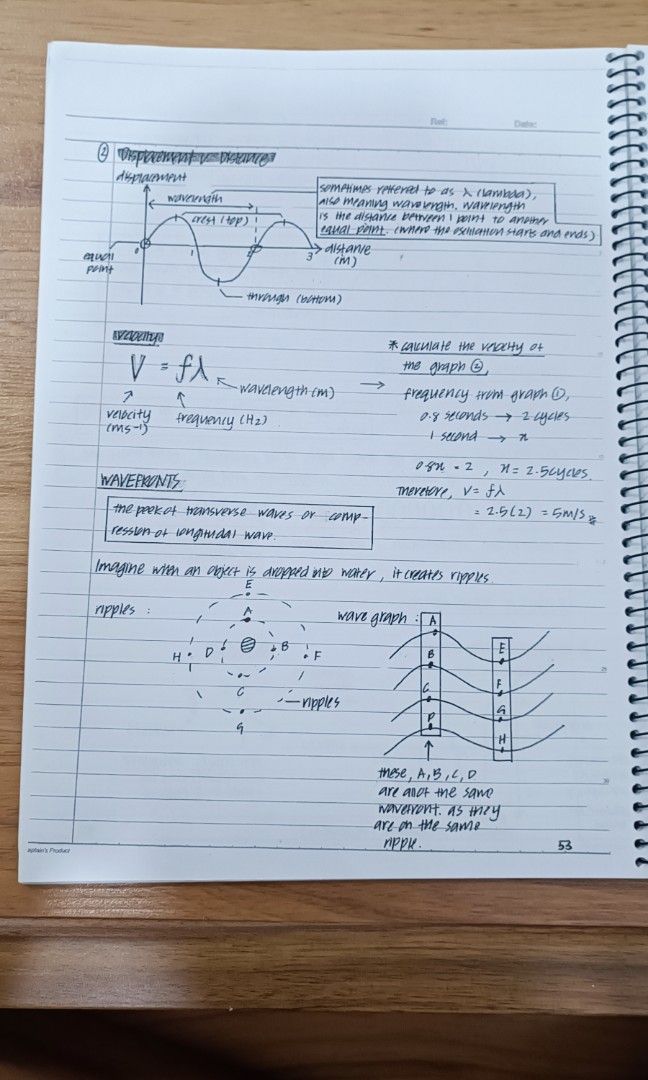 Ref: Date:
② Displacement v Distance
displacement
wavelength
crest (top)
sometimes referred to as λ (lambda),
also meaning wavelength. wavelength
is the distance between 1 point to another
equal point. (where the oscillation starts and ends)
equal
point
0 1 2 3
distance
(m)
through (bottom)
velocity
V = fλ
wavelength (m)
velocity
(ms⁻¹)
frequency (Hz)
* calculate the velocity of
the graph ②,
frequency from graph ①,
0.8 seconds → 2 cycles
1 second → x
0.8x = 2 , x = 2.5 cycles.
Therefore, v = fλ
= 2.5(2) = 5m/s
WAVEFRONTS
the peek of transverse waves or comp-
ression of longitudal wave.
Imagine when an object is dropped into water, it creates ripples.
ripples :
E
A
H D B F
C
G
ripples
wave graph :
A
B
C
D
E
F
G
H
these, A, B, C, D
are all of the same
wavefront. as they
are on the same
ripple.
53
aptain's Product